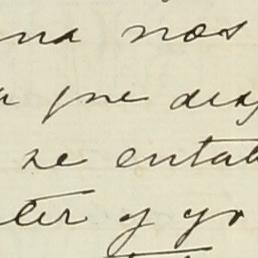 na nos
que des
se entab
ter y yo